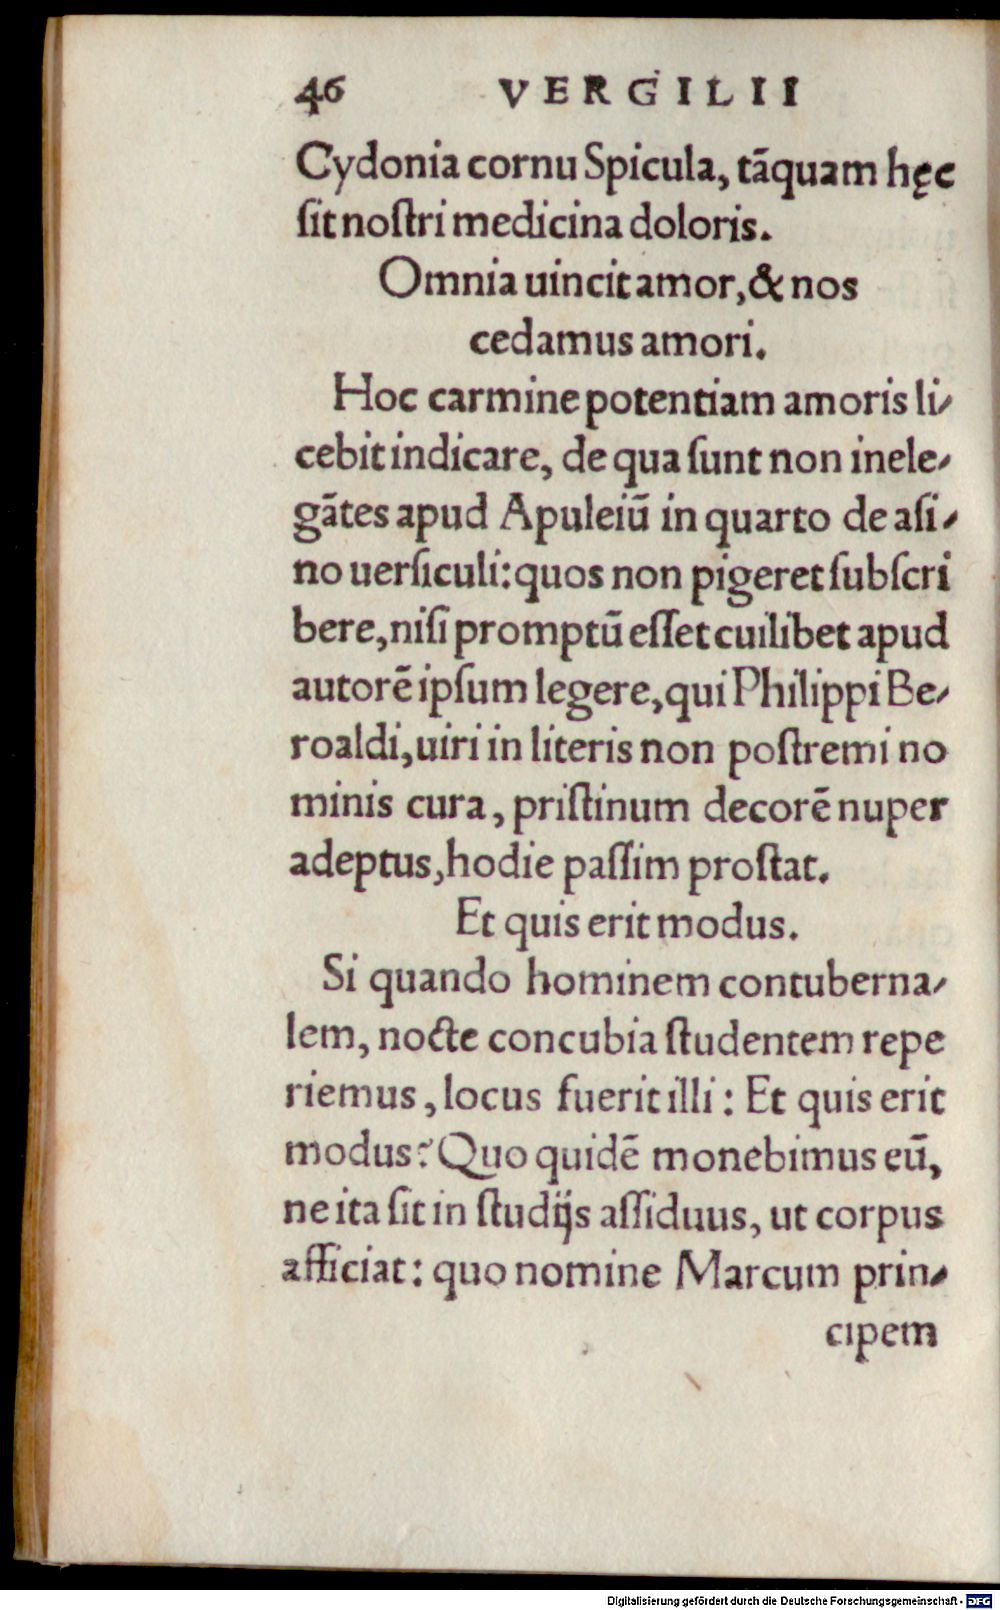 46 VERGILII
Cydonia cornu Spicula, tāquam hęc
ſit noſtri medicina doloris.
Omnia uincit amor, & nos
cedamus amori.
Hoc carmine potentiam amoris li-
cebit indicare, de qua ſunt non inele-
gātes apud Apuleiū in quarto de aſi-
no uerſiculi: quos non pigeret ſubſcri
bere, niſi promptū eſſet cuilibet apud
autorē ipſum legere, qui Philippi Be-
roaldi, uiri in literis non poſtremi no
minis cura, priſtinum decorē nuper
adeptus, hodie paſſim proſtat.
Et quis erit modus.
Si quando hominem contuberna-
lem, nocte concubia ſtudentem repe
riemus, locus fuerit illi: Et quis erit
modus? Quo quidē monebimus eū,
ne ita ſit in ſtudijs aſſiduus, ut corpus
afficiat: quo nomine Marcum prin-
cipem
Digitalisierung gefördert durch die Deutsche Forschungsgemeinschaft - DFG